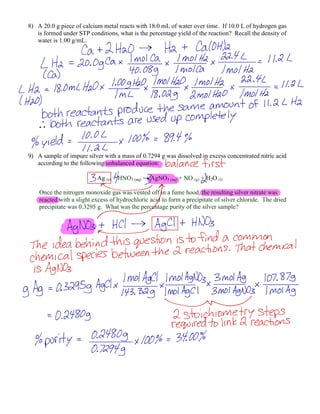 8) A 20.0 g piece of calcium metal reacts with 18.0 mL of water over time. If 10.0 L of hydrogen gas
is formed under STP conditions, what is the percentage yield of the reaction? Recall the density of
water is 1.00 g/mL.
Ca + 2H₂O → H₂ + Ca(OH)₂
L H₂ = 20.0g Ca x 1 mol Ca / 40.08g x 1 mol H₂ / 1 mol Ca x 22.4 L / 1 mol H₂ = 11.2 L
(Ca)
L H₂ = 18.0mL H₂O x 1.00g H₂O / 1 mL x 1 mol H₂O / 18.02g x 1 mol H₂ / 2 mol H₂O x 22.4 L / 1 mol H₂ = 11.2 L
(H₂O)
both reactants produce the same amount of 11.2 L H₂
∴ both reactants are used up completely
% yield = 10.0 L / 11.2 L x 100% = 89.4%
9) A sample of impure silver with a mass of 0.7294 g was dissolved in excess concentrated nitric acid
according to the following unbalanced equation: balance first
3 Ag (s) + 4 HNO₃ (aq) → 3 AgNO₃ (aq) + NO (g) + 2 H₂O (l)
Once the nitrogen monoxide gas was vented off in a fume hood, the resulting silver nitrate was
reacted with a slight excess of hydrochloric acid to form a precipitate of silver chloride. The dried
precipitate was 0.3295 g. What was the percentage purity of the silver sample?
AgNO₃ + HCl → AgCl + HNO₃
The idea behind this question is to find a common
chemical species between the 2 reactions. That chemical
is AgNO₃
g Ag = 0.3295g AgCl x 1 mol AgCl / 143.32g x 1 mol AgNO₃ / 1 mol AgCl x 3 mol Ag / 3 mol AgNO₃ x 107.87g / 1 mol Ag
= 0.2480g
2 stoichiometry steps
required to link 2 reactions
% purity = 0.2480g / 0.7294g x 100% = 34.00%